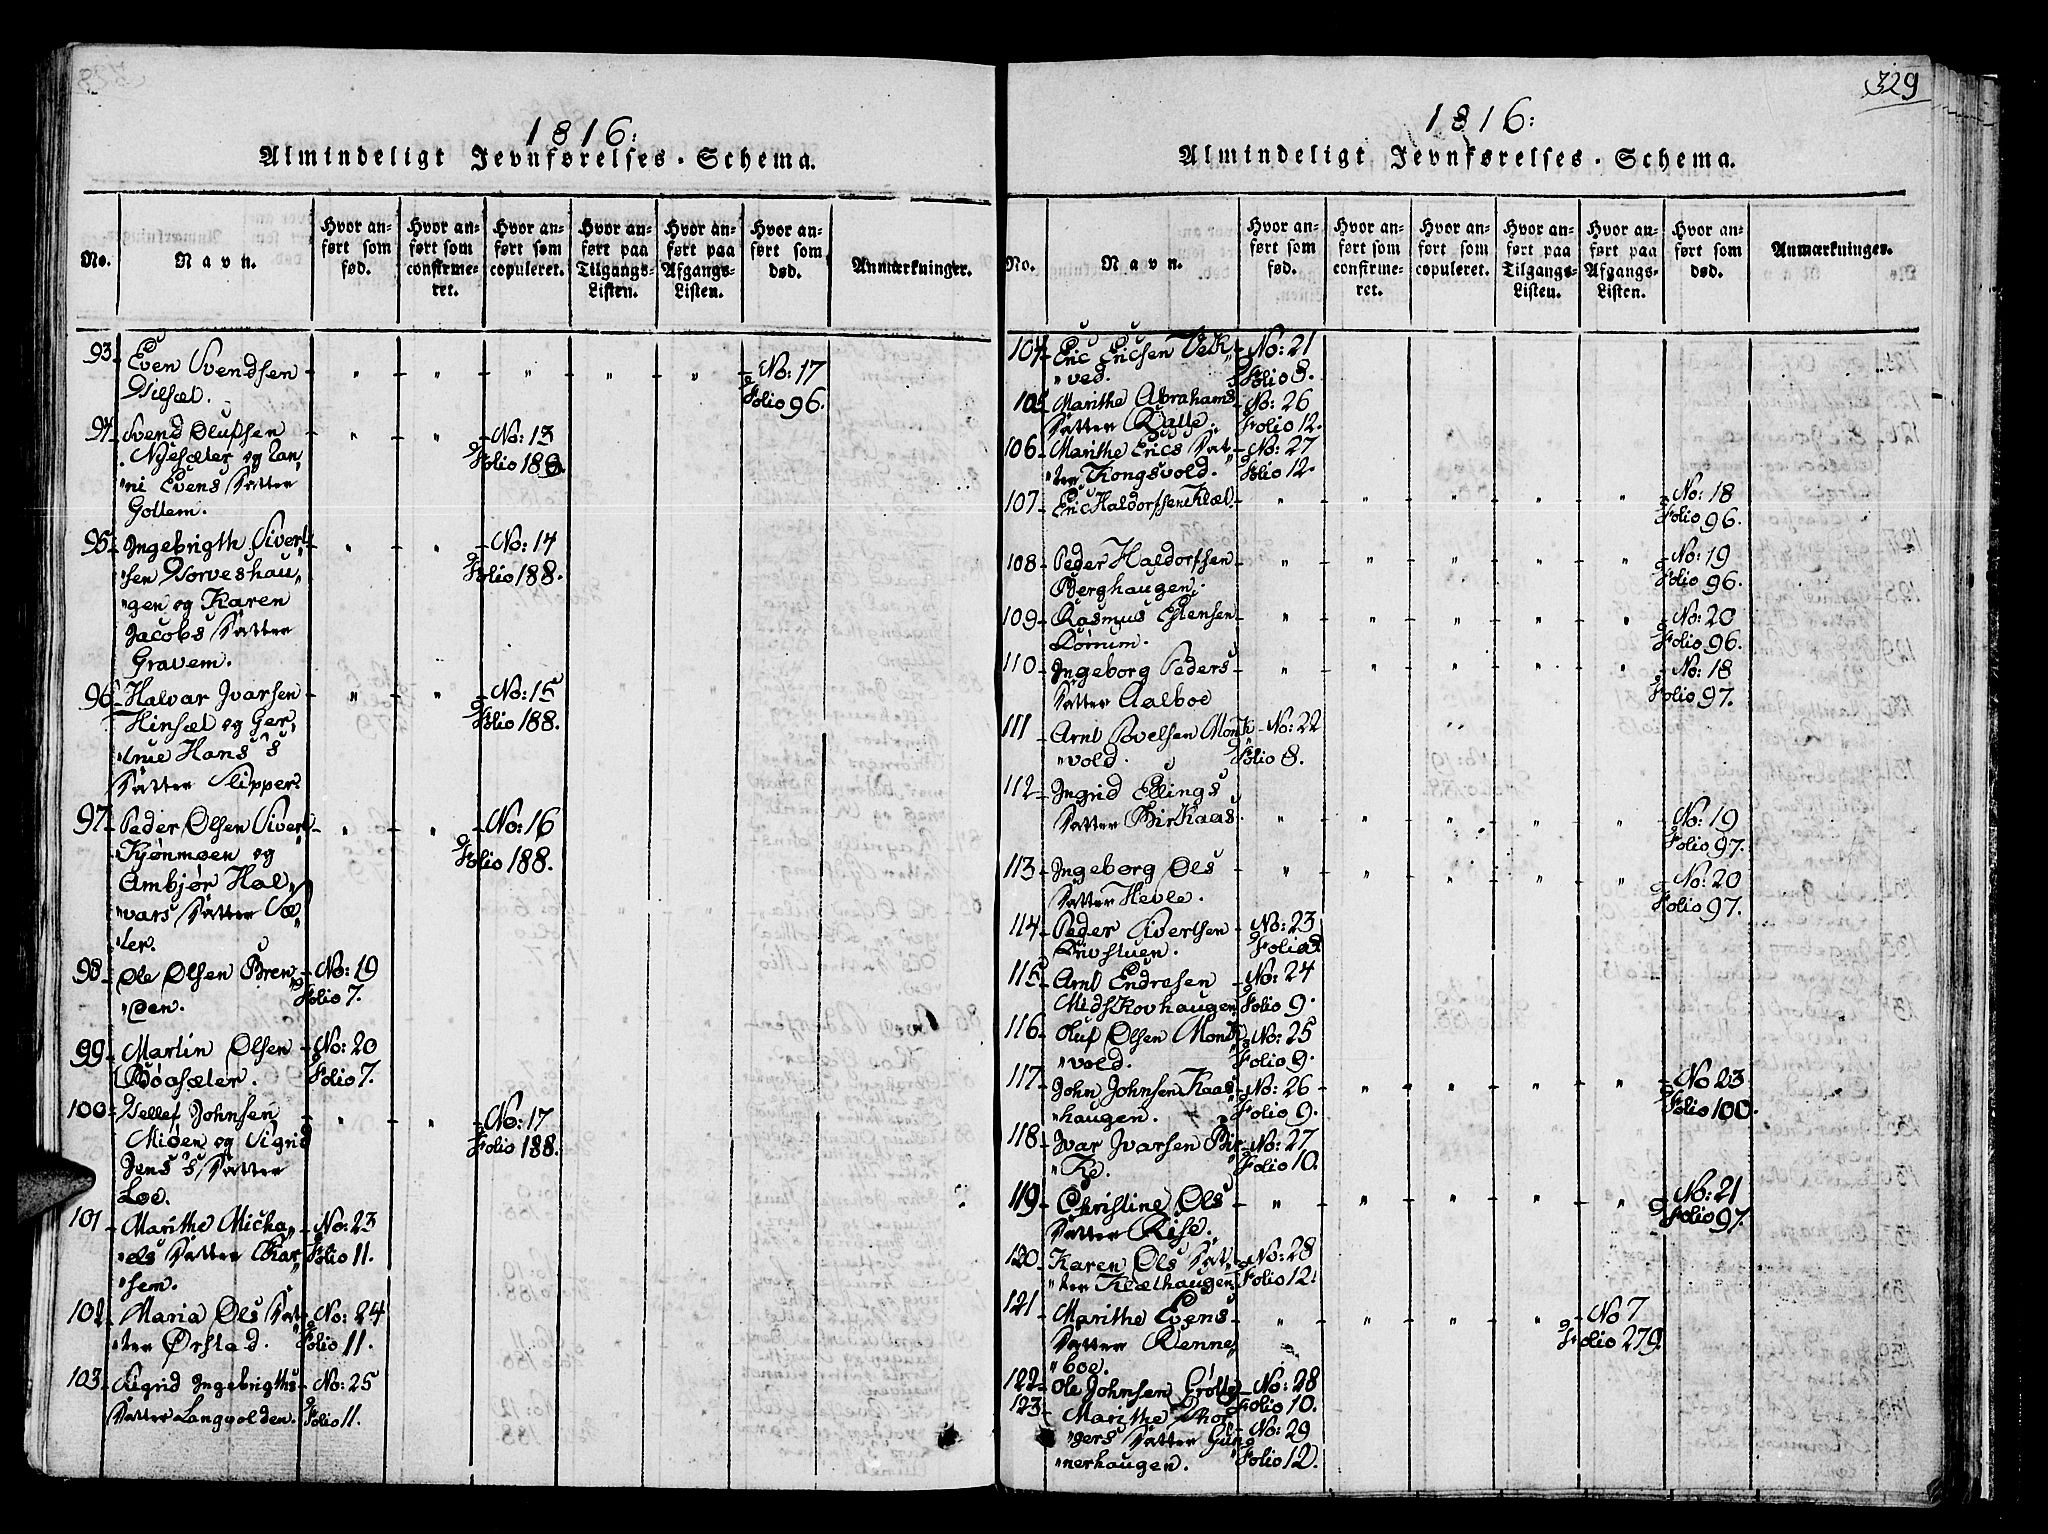 1816:
Almindeligt Jevnførelses-Schema.
No.
Navn.
Hvor anført som fød.
Hvor anført som confirmeret.
Hvor anført som copuleret.
Hvor anført paa Tilgangs-Listen.
Hvor anført paa Afgangs-Listen.
Hvor anført som død.
Anmærkninger.
93. Even Svendsen No: 17
Folio 96.
94 Svend Olufsen No: 13
Nyesæter og Folio 188.
ni Evens Datter
Gollem.
95 Ingebrigth Sivert No: 14
sen Folio 188.
gen og Karen
Jacobs Datter
Gravem.
96 Halvar Ivarsen No: 15
Hinsæl og Ger„ Folio 188.
„true Hans's
Datter Slipper
97 Peder Olsen Sivert No: 16
Kjønmoen og Folio 188.
Ambjør Hal„
„vars Datter Sæ„
„ter.
98 Ole Olsen Bren„ No: 19
„den. Folio 7.
99 Martin Olsen No: 20
Bøasæter. Folio 7.
100 Dellef Johnsen No: 17
Mioen og Sigrid Folio 188.
Jens's Datter
Loe.
101 Marithe Micha„ No: 23
„els Datter Folio 11.
„sem.
102 Maria Ols Dat„ No: 24
„ter Ørstad. Folio 11.
103 Sigrid Ingebrigths No: 25
Datter Langvolden. Folio 11.
329
1816:
Almindeligt Jevnførelses-Schema.
No.
Navn.
Hvor anført som fød.
Hvor anført som confirmeret.
Hvor anført som copuleret.
Hvor anført paa Tilgangs-Listen.
Hvor anført paa Afgangs-Listen.
Hvor anført som død.
Anmærkninger.
104 Eric Ericsen Vek„ No: 21
„ved. Folio 8.
105 Marithe Abrahams No: 26
Datter Folio 12.
106 Marithe Erics Dat„ No: 27
„ter Kongsvold. Folio 12.
107 Eric Haldorssen Klæt. No: 18
Folio 96.
108 Peder Haldorssen No: 19
Berghaugen. Folio 96.
109 Rasmus Estensen No: 20
Folio 96.
110 Ingeborg Peders No: 18
Datter Aalboe Folio 97.
111 Arnt Povelsen Monk No: 22
„vold. Folio 8.
112 Ingrid Ellings
Datter Birkaas. No: 19
Folio 97.
113 Ingeborg Ols No: 20
Datter Hevle. Folio 97.
114 Peder Sivertsen No: 23
Folio
115 Arnt Endresen No: 24
Midskovhaugen Folio 9.
116 Oluf Olsen Monk„ No: 25
„vold. Folio 9.
117 John Johnsen Kaas„ No: 26 No 23
„haugen. Folio 9. Folio 100.
118 Ivar Ivarsen Bir„ No: 27
„ke. Folio 10.
119 Christine Ols No: 21
Datter Rise. Folio 97.
120 Karen Ols Dat„ No: 28
„ter Klæthaugen. Folio 12.
121 Marithe Evens No 7
Datter Renne„ Folio 279.
„boe.
122 Ole Johnsen No: 28
Folio 10.
123 Marithe Thor„ No: 29
„gers Datter Gun„ Folio 12.
„nerhaugen.